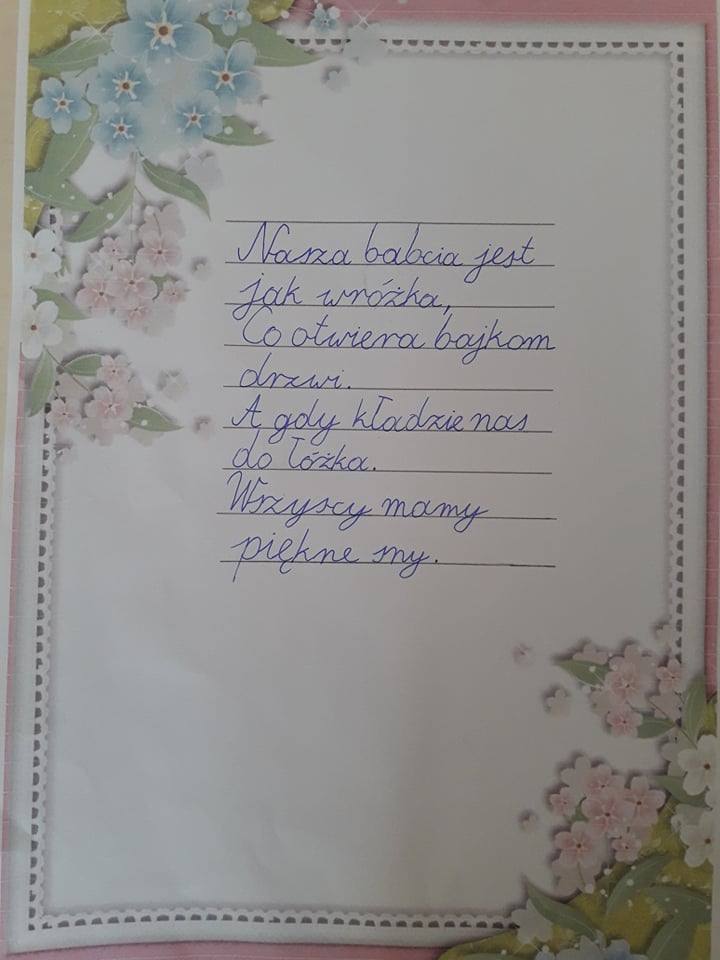 Nasza babcia jest
jak wróżka,
Co otwiera bajkom
drzwi.
A gdy kładzie nas
do łóżka.
Wszyscy mamy
piękne sny.